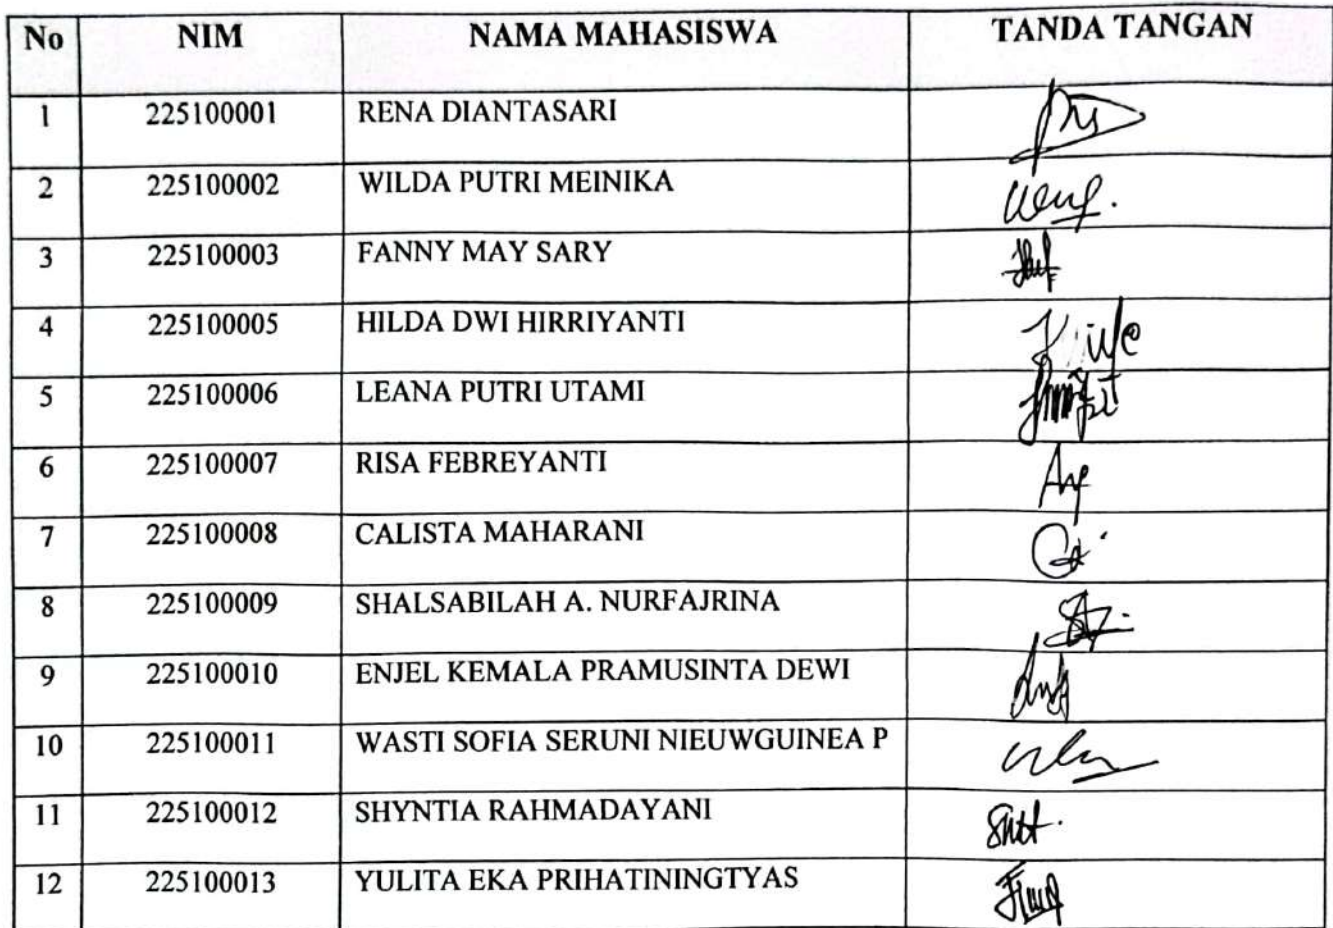 No NIM NAMA MAHASISWA TANDA TANGAN
1 225100001 RENA DIANTASARI
2 225100002 WILDA PUTRI MEINIKA
3 225100003 FANNY MAY SARY
4 225100005 HILDA DWI HIRRIYANTI
5 225100006 LEANA PUTRI UTAMI
6 225100007 RISA FEBREYANTI
7 225100008 CALISTA MAHARANI
8 225100009 SHALSABILAH A. NURFAJRINA
9 225100010 ENJEL KEMALA PRAMUSINTA DEWI
10 225100011 WASTI SOFIA SERUNI NIEUWGUINEA P
11 225100012 SHYNTIA RAHMADAYANI
12 225100013 YULITA EKA PRIHATININGTYAS